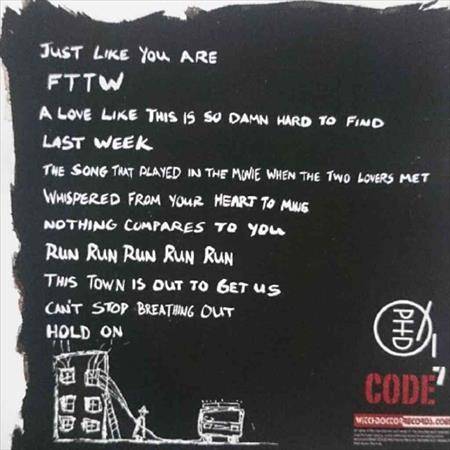 JUST LIKE YOU ARE
FTTW
A LOVE LIKE THIS IS SO DAMN HARD TO FIND
LAST WEEK
THE SONG THAT PLAYED IN THE MOVIE WHEN THE TWO LOVERS MET
WHISPERED FROM YOUR HEART TO MINE
NOTHING COMPARES TO YOU
RUN RUN RUN RUN RUN
THIS TOWN IS OUT TO GET US
CAN'T STOP BREATHING OUT
HOLD ON
PHD
CODE 7
WITCHDOCTORRECORDS.COM